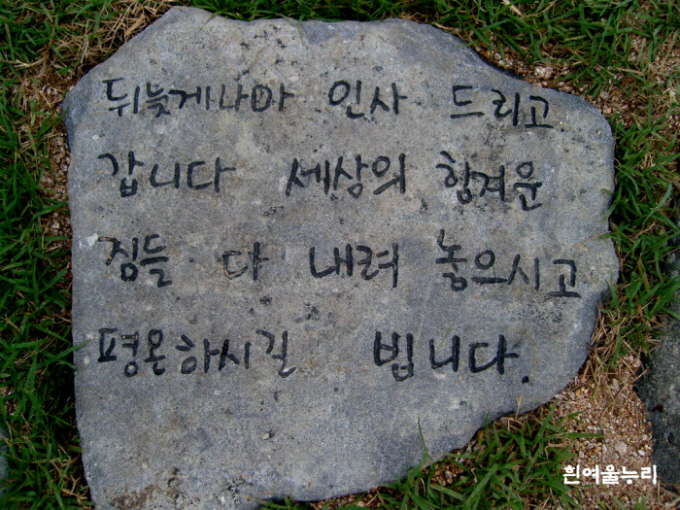 뒤늦게나마 인사 드리고
갑니다 세상의 힘겨운
짐들 다 내려 놓으시고
평온하시길 빕니다.
흰여울누리